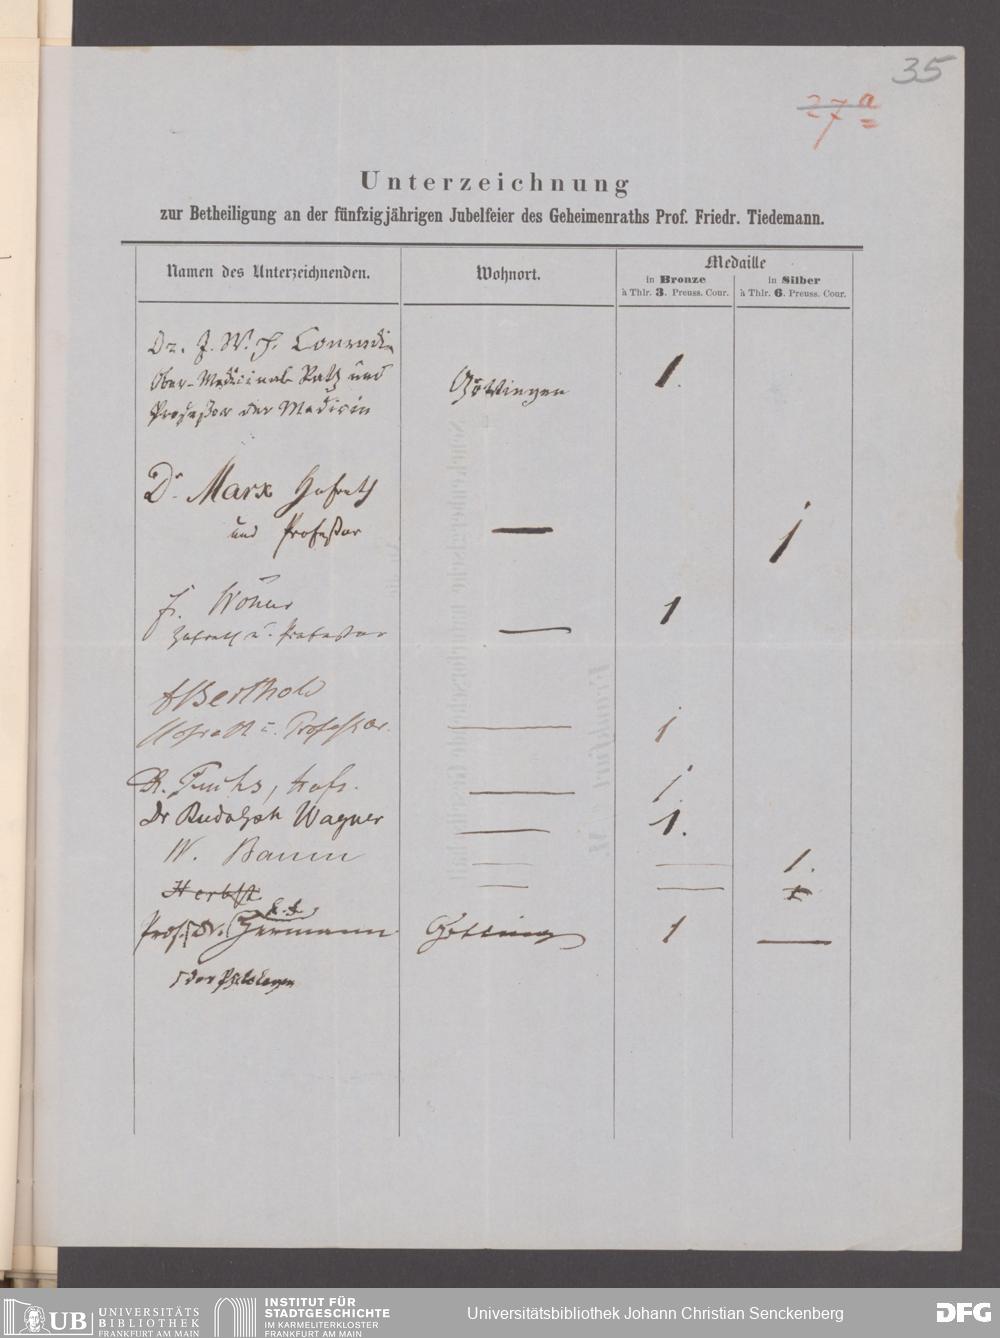 35
27a
Unterzeichnung
zur Betheiligung an der fünfzigjährigen Jubelfeier des Geheimenraths Prof. Friedr. Tiedemann.
Namen des Unterzeichnenden.
Wohnort.
Medaille
in Bronze
à Thlr. 3. Preuss. Cour.
in Silber
à Thlr. 6. Preuss. Cour.
Dr. J. W. H. Conradi
Ober-Medicinal-Rath und
Professor der Medicin
Göttingen
1.
Dr. Marx Hofrath
und Professor
—
1
F. Wöhler
Hofrath u. Professor
—
1
Berthold
Hofrath u. Professor.
—
1
Fuhs, Hofr.
—
1.
Dr Rudolph Wagner
—
1.
W. Baum
—
—
1.
Herbst
—
—
1
Prof. Dr. K. F. Hermann
Götting
1
—
der Philologe
UB UNIVERSITÄTS
BIBLIOTHEK
FRANKFURT AM MAIN
INSTITUT FÜR
STADTGESCHICHTE
IM KARMELITERKLOSTER
FRANKFURT AM MAIN
Universitätsbibliothek Johann Christian Senckenberg
DFG